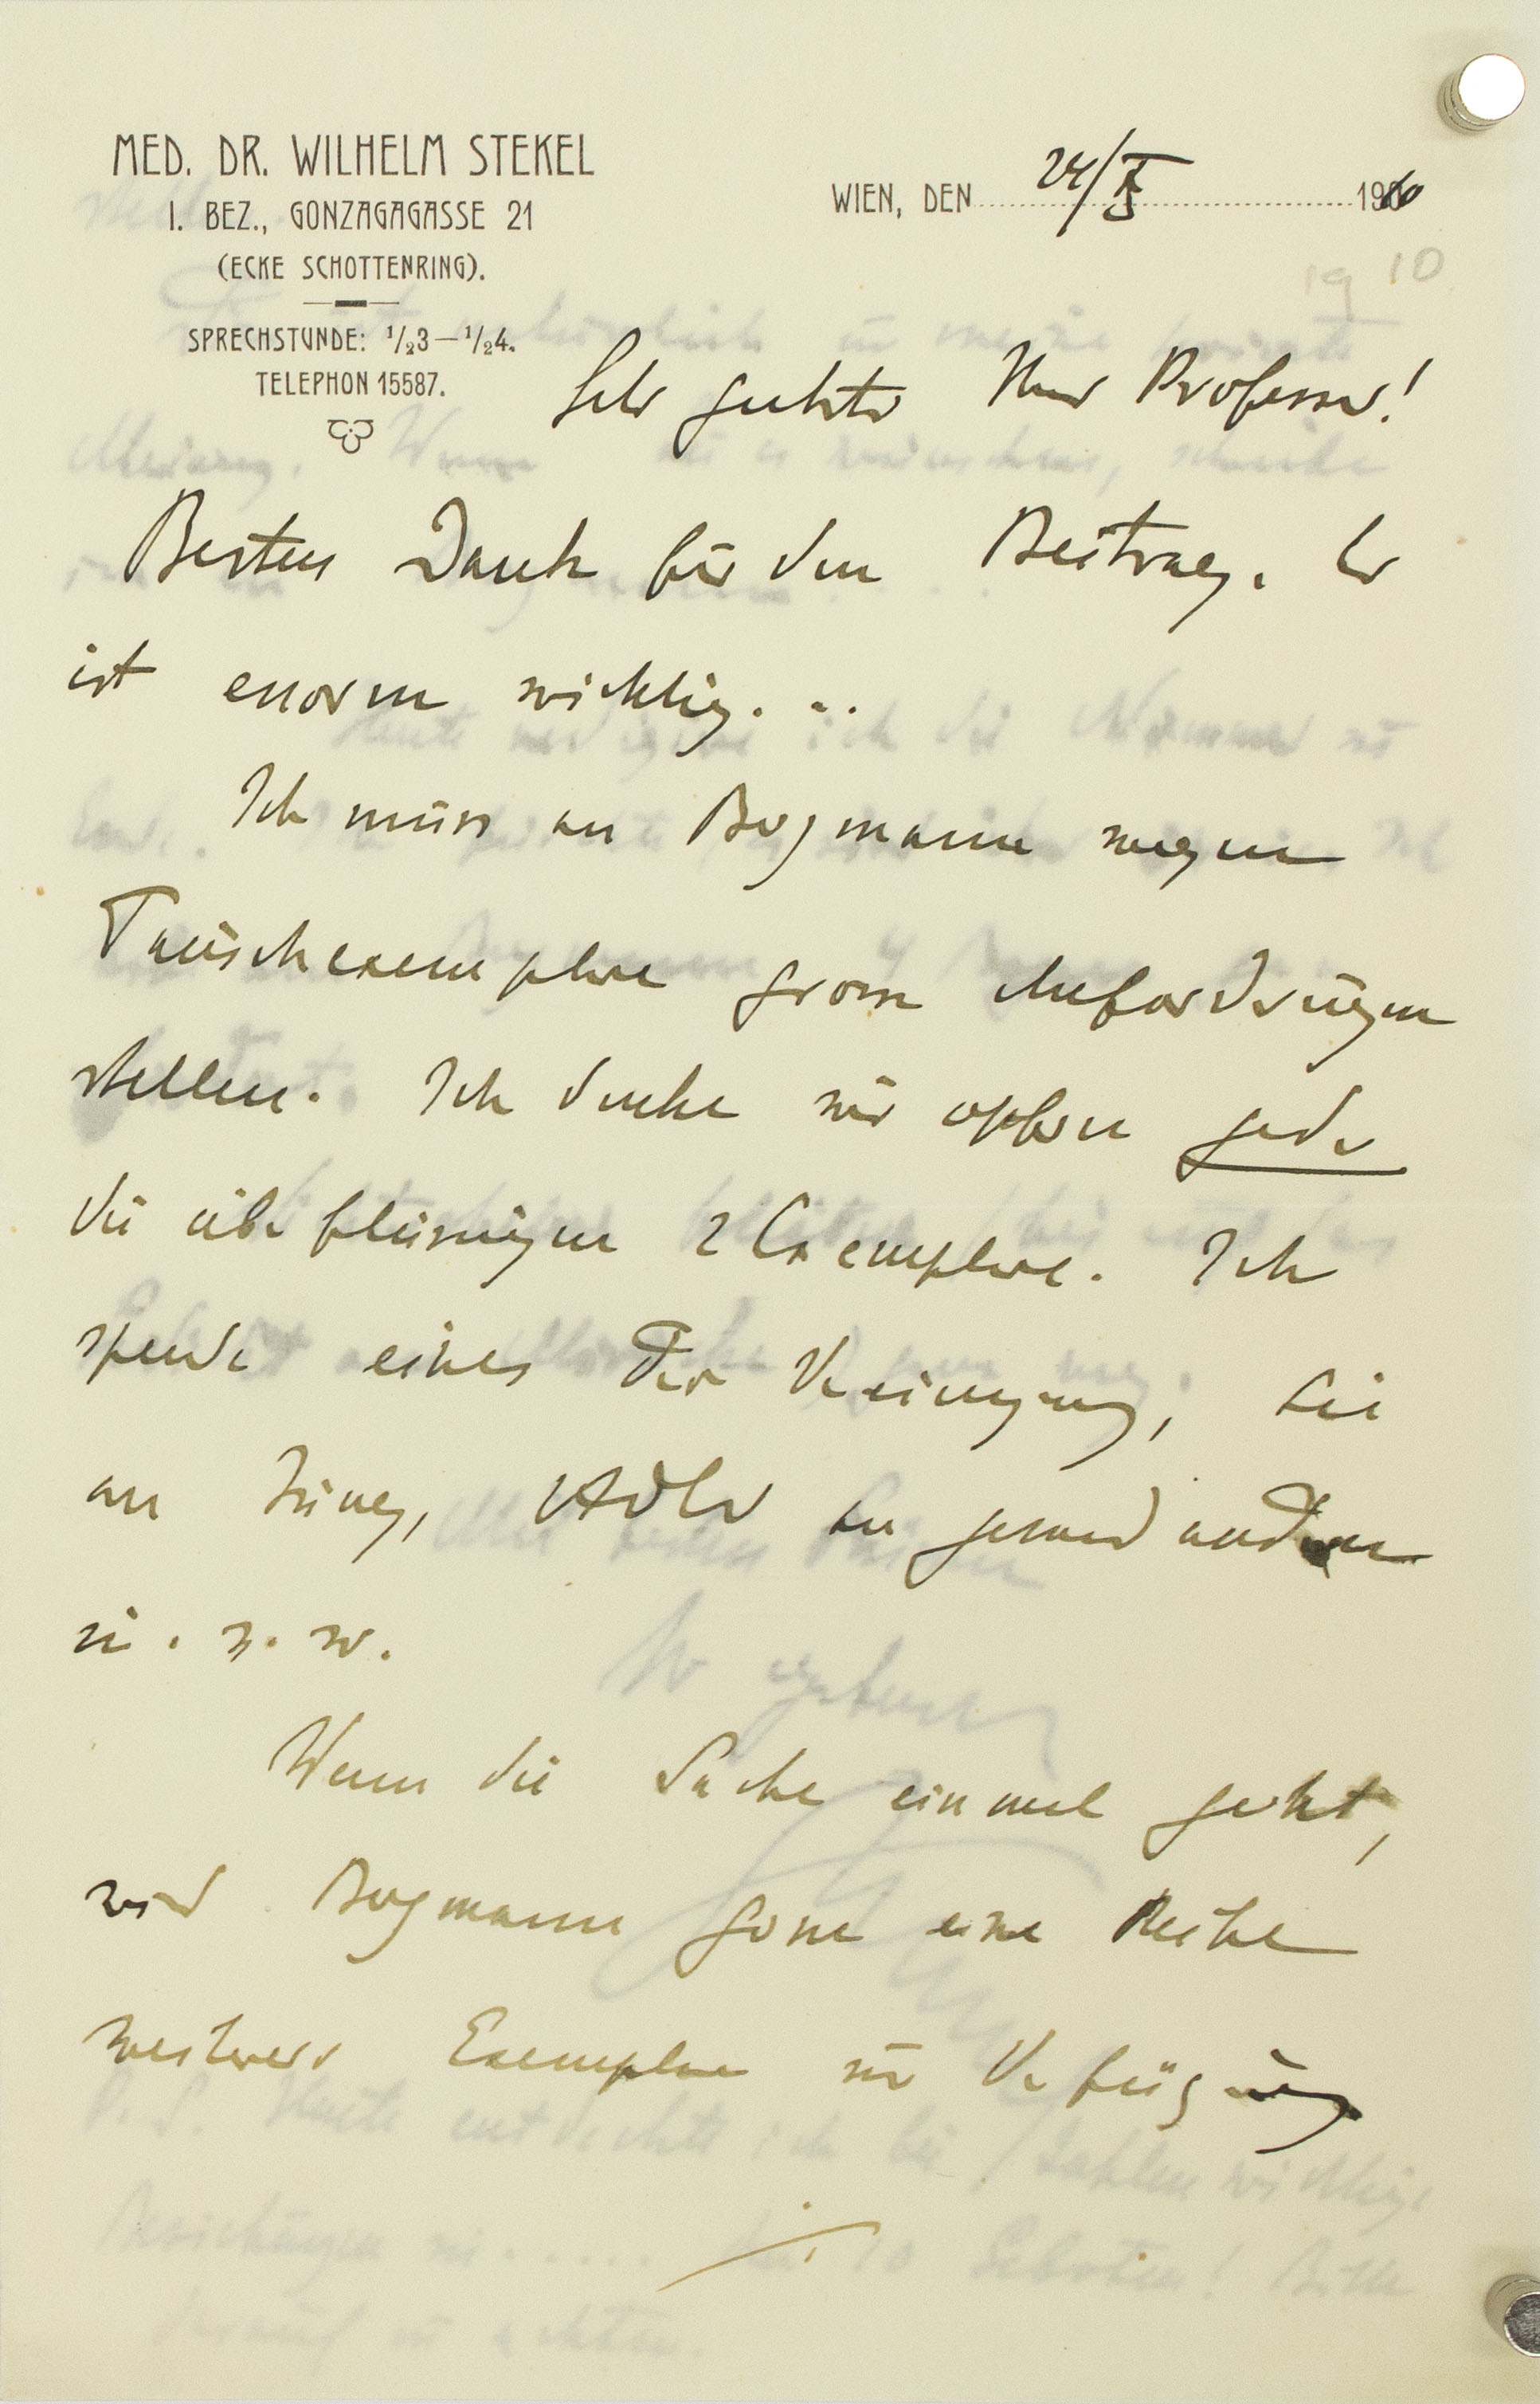 MED. DR. WILHELM STEKEL
I. BEZ., GONZAGAGASSE 21
(ECKE SCHOTTENRING).
SPRECHSTUNDE: 1/2 3 — 1/2 4.
TELEPHON 15587.
WIEN, DEN 24/X 1910
1910
Sehr geehrter Herr Professor!
Besten Dank für den Beitrag. Er
ist enorm wichtig. . .
Ich muss an Bergmann wegen
Tauschexemplare grosse Anforderungen
stellen. Ich denke wir opfern jeder
die überflüssigen 2 Exemplare. Ich
spende eines der Vereinigung, Sie
an Jung, Adler an jemand anderen
u. s. w.
Wenn die Sache einmal geht,
wird Bergmann gerne eine Reihe
weiterer Exemplare zur Verfügung